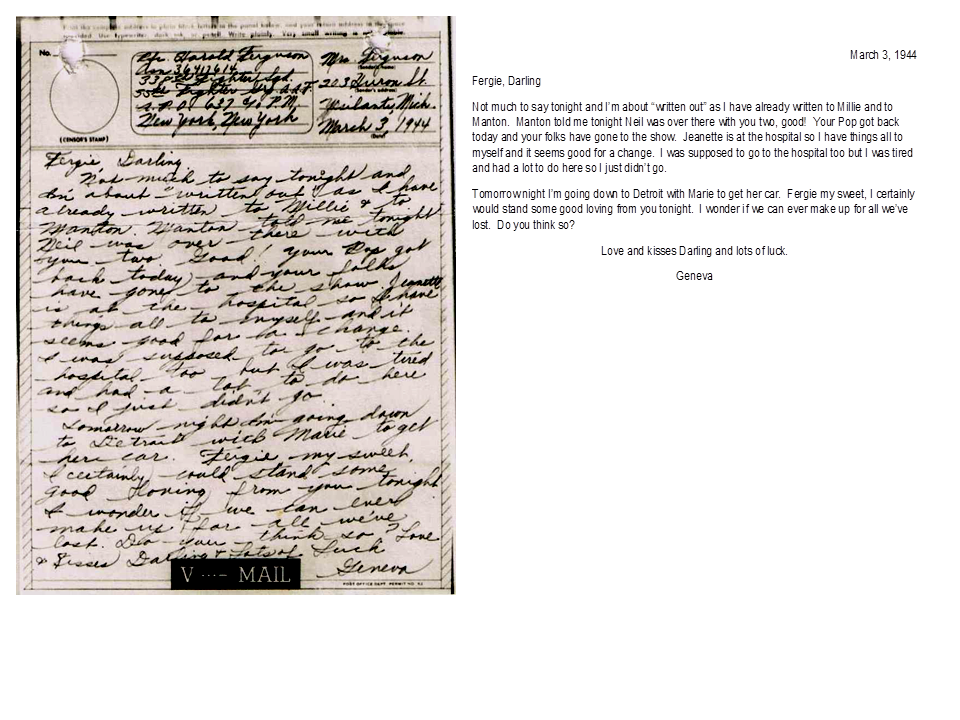 No.
(CENSOR'S STAMP)
Harold Ferguson
New York, New York
Mrs. Ferguson
(Sender's name)
203 Huron St.
(Sender's address)
Mich.
March 3, 1944
(Date)
Fergie, Darling,
Not much to say tonight and
I'm about "written out" as I have
already written to Millie & to
Manton. Manton told me tonight
Neil was over there with
you two, Good! Your Pop got
back today and your folks
have gone to the show. Jeanette
is at the hospital so I have
things all to myself and it
seems good for a change.
I was supposed to go to the
hospital too but I was tired
and had a lot to do here
so I just didn't go.
Tomorrow night I'm going down
to Detroit with Marie to get
her car. Fergie my sweet,
I certainly could stand some
good loving from you tonight
I wonder if we can ever
make up for all we've
lost. Do you think so? Love
& Kisses Darling & Lots of Luck
Geneva
V ···– MAIL
POST OFFICE DEPT. PERMIT NO.
March 3, 1944
Fergie, Darling
Not much to say tonight and I'm about “written out” as I have already written to Millie and to
Manton. Manton told me tonight Neil was over there with you two, good! Your Pop got back
today and your folks have gone to the show. Jeanette is at the hospital so I have things all to
myself and it seems good for a change. I was supposed to go to the hospital too but I was tired
and had a lot to do here so I just didn't go.
Tomorrow night I'm going down to Detroit with Marie to get her car. Fergie my sweet, I certainly
would stand some good loving from you tonight. I wonder if we can ever make up for all we've
lost. Do you think so?
Love and kisses Darling and lots of luck.
Geneva